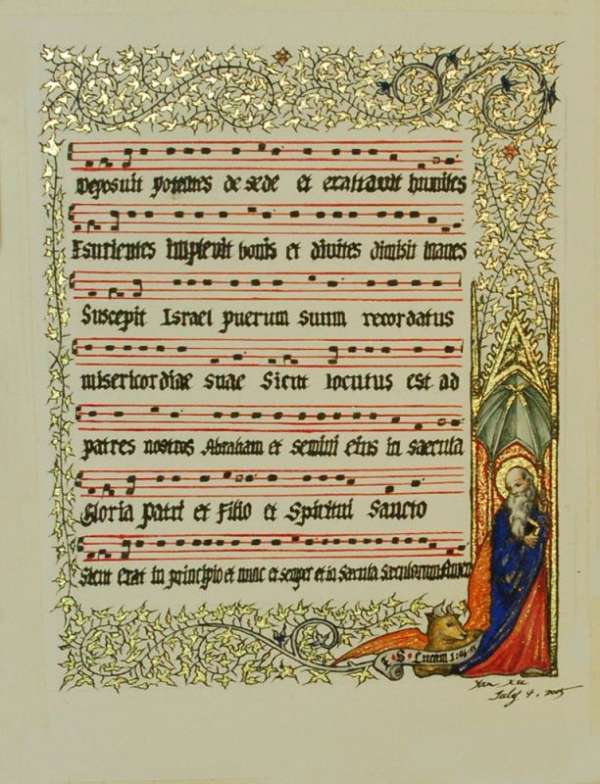 Deposuit potentes de sede et exaltavit humiles
Esurientes implevit bonis et divites dimisit inanes
Suscepit Israel puerum suum recordatus
misericordiae suae Sicut locutus est ad
patres nostros Abraham et semini eius in saecula
Gloria Patri et Filio et Spiritui Sancto
Sicut Erat in principio et nunc et semper et in Saecula Saeculorum Amen
S Lucam
July 4. 2005